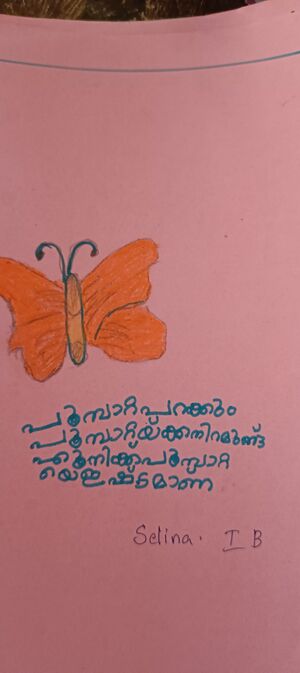 പൂമ്പാറ്റ പറക്കും
പൂമ്പാറ്റയ്ക്ക് നിറമുണ്ട്
എനിക്ക് പൂമ്പാറ്റ
യെ ഇഷ്ടമാണ
Selina. I B